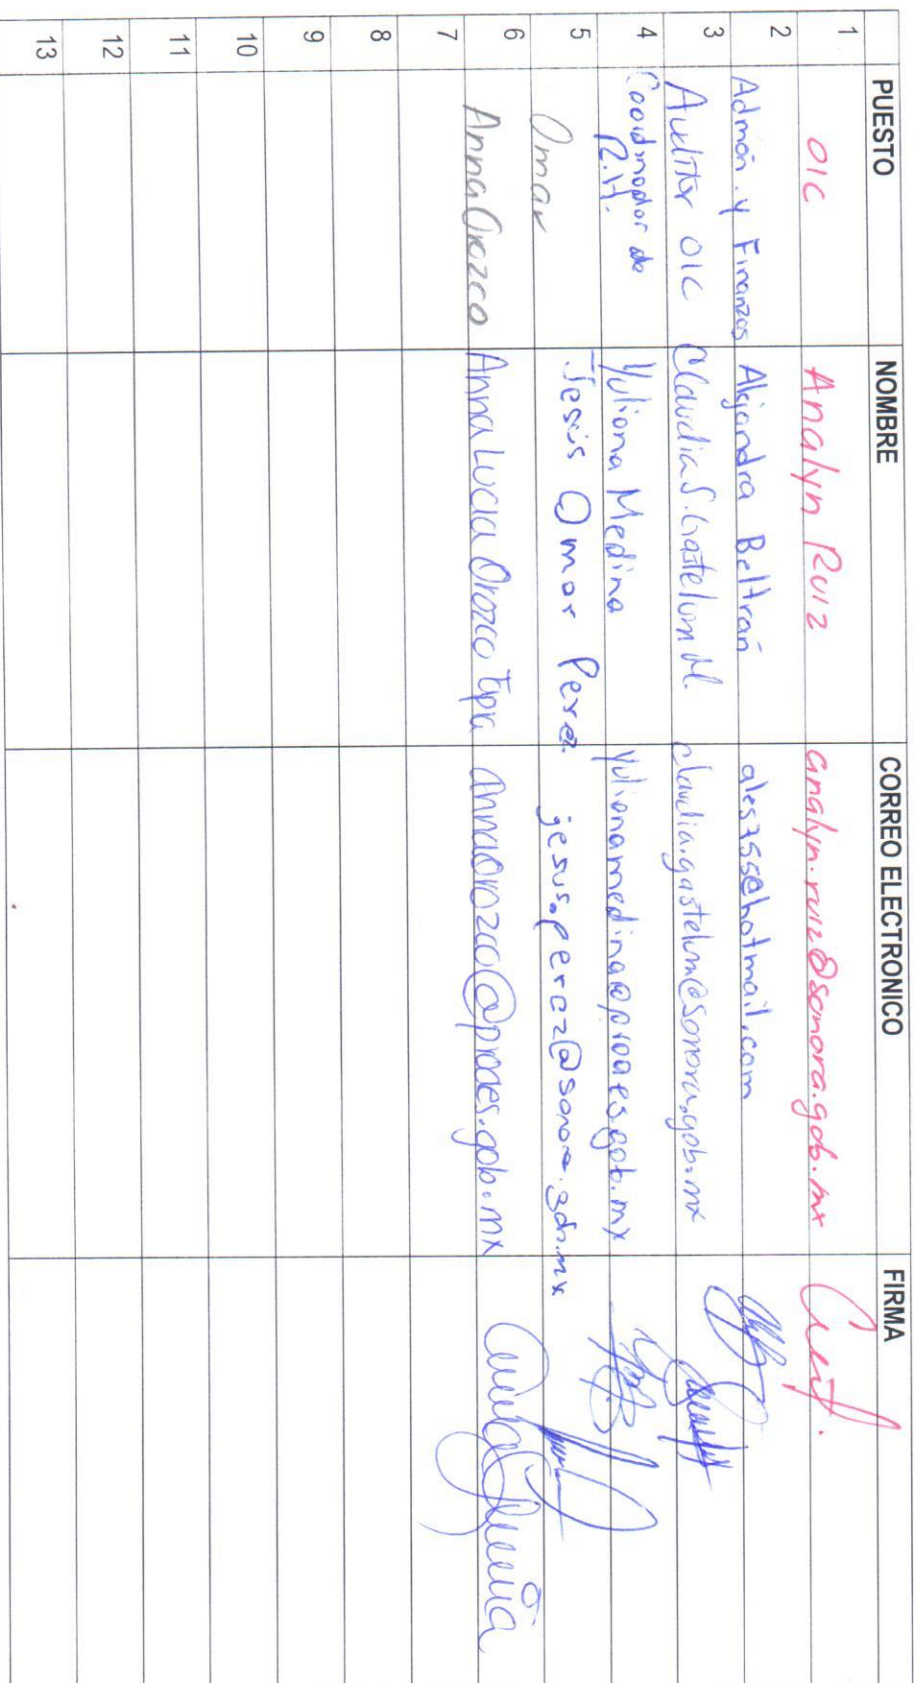 PUESTO NOMBRE CORREO ELECTRONICO FIRMA
1 OIC Analyn Ruiz analyn.ruiz@sonora.gob.mx
2 Admón. y Finanzas Alejandra Beltrán ales755@hotmail.com
3 Auditor OIC Claudia S. Gastelum M. claudia.gastelum@sonora.gob.mx
4 Coordinador de R.H. Yuliana Medina yulianamedina@proaes.gob.mx
5 Omar Jesús Omar Perez jesus.perez@sonora.gob.mx
6 Anna Orozco Anna Lucia Orozco Tapia annaorozco@proaes.gob.mx
7
8
9
10
11
12
13